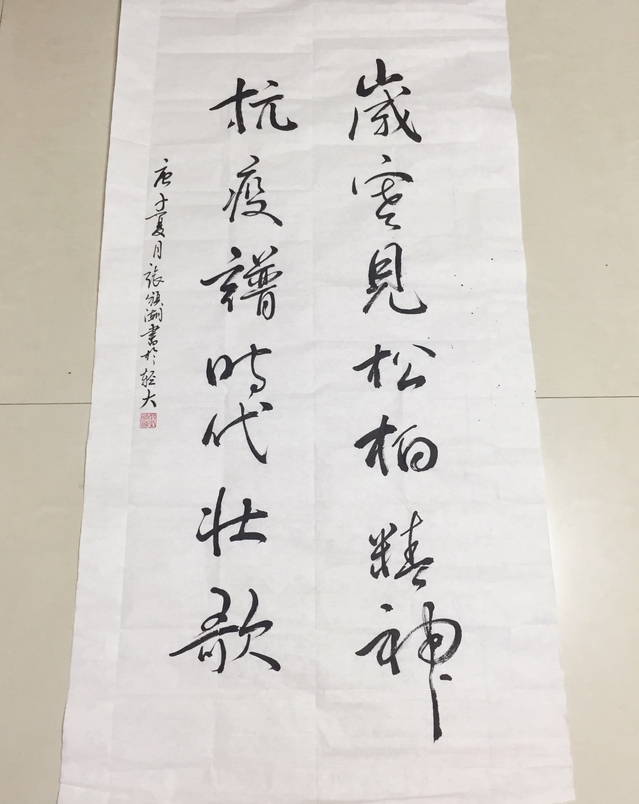 歲寒見松柏精神
抗疫譜時代壯歌
庚子夏月張湖書於輕大